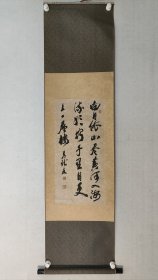 白日依山尽黄河入海
流欲穷千里目更
上一层楼